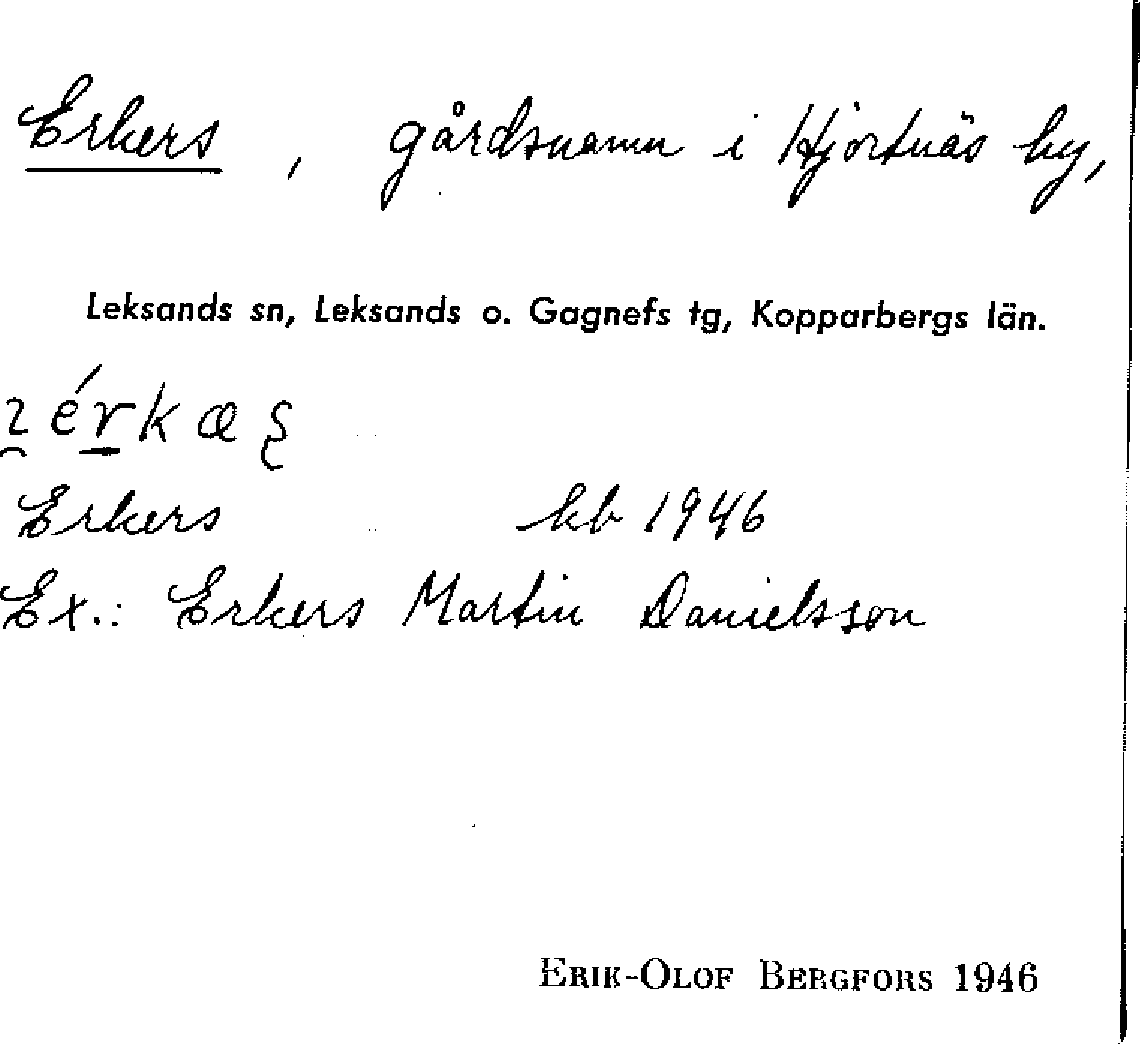 Erkers, gårdsnamn i Hjortnäs by,
Leksands sn, Leksands o. Gagnefs tg, Kopparbergs län.
Erkers kb 1946
Ex.: Erkers Martin Danielsson
ERIK-OLOF BERGFORS 1946